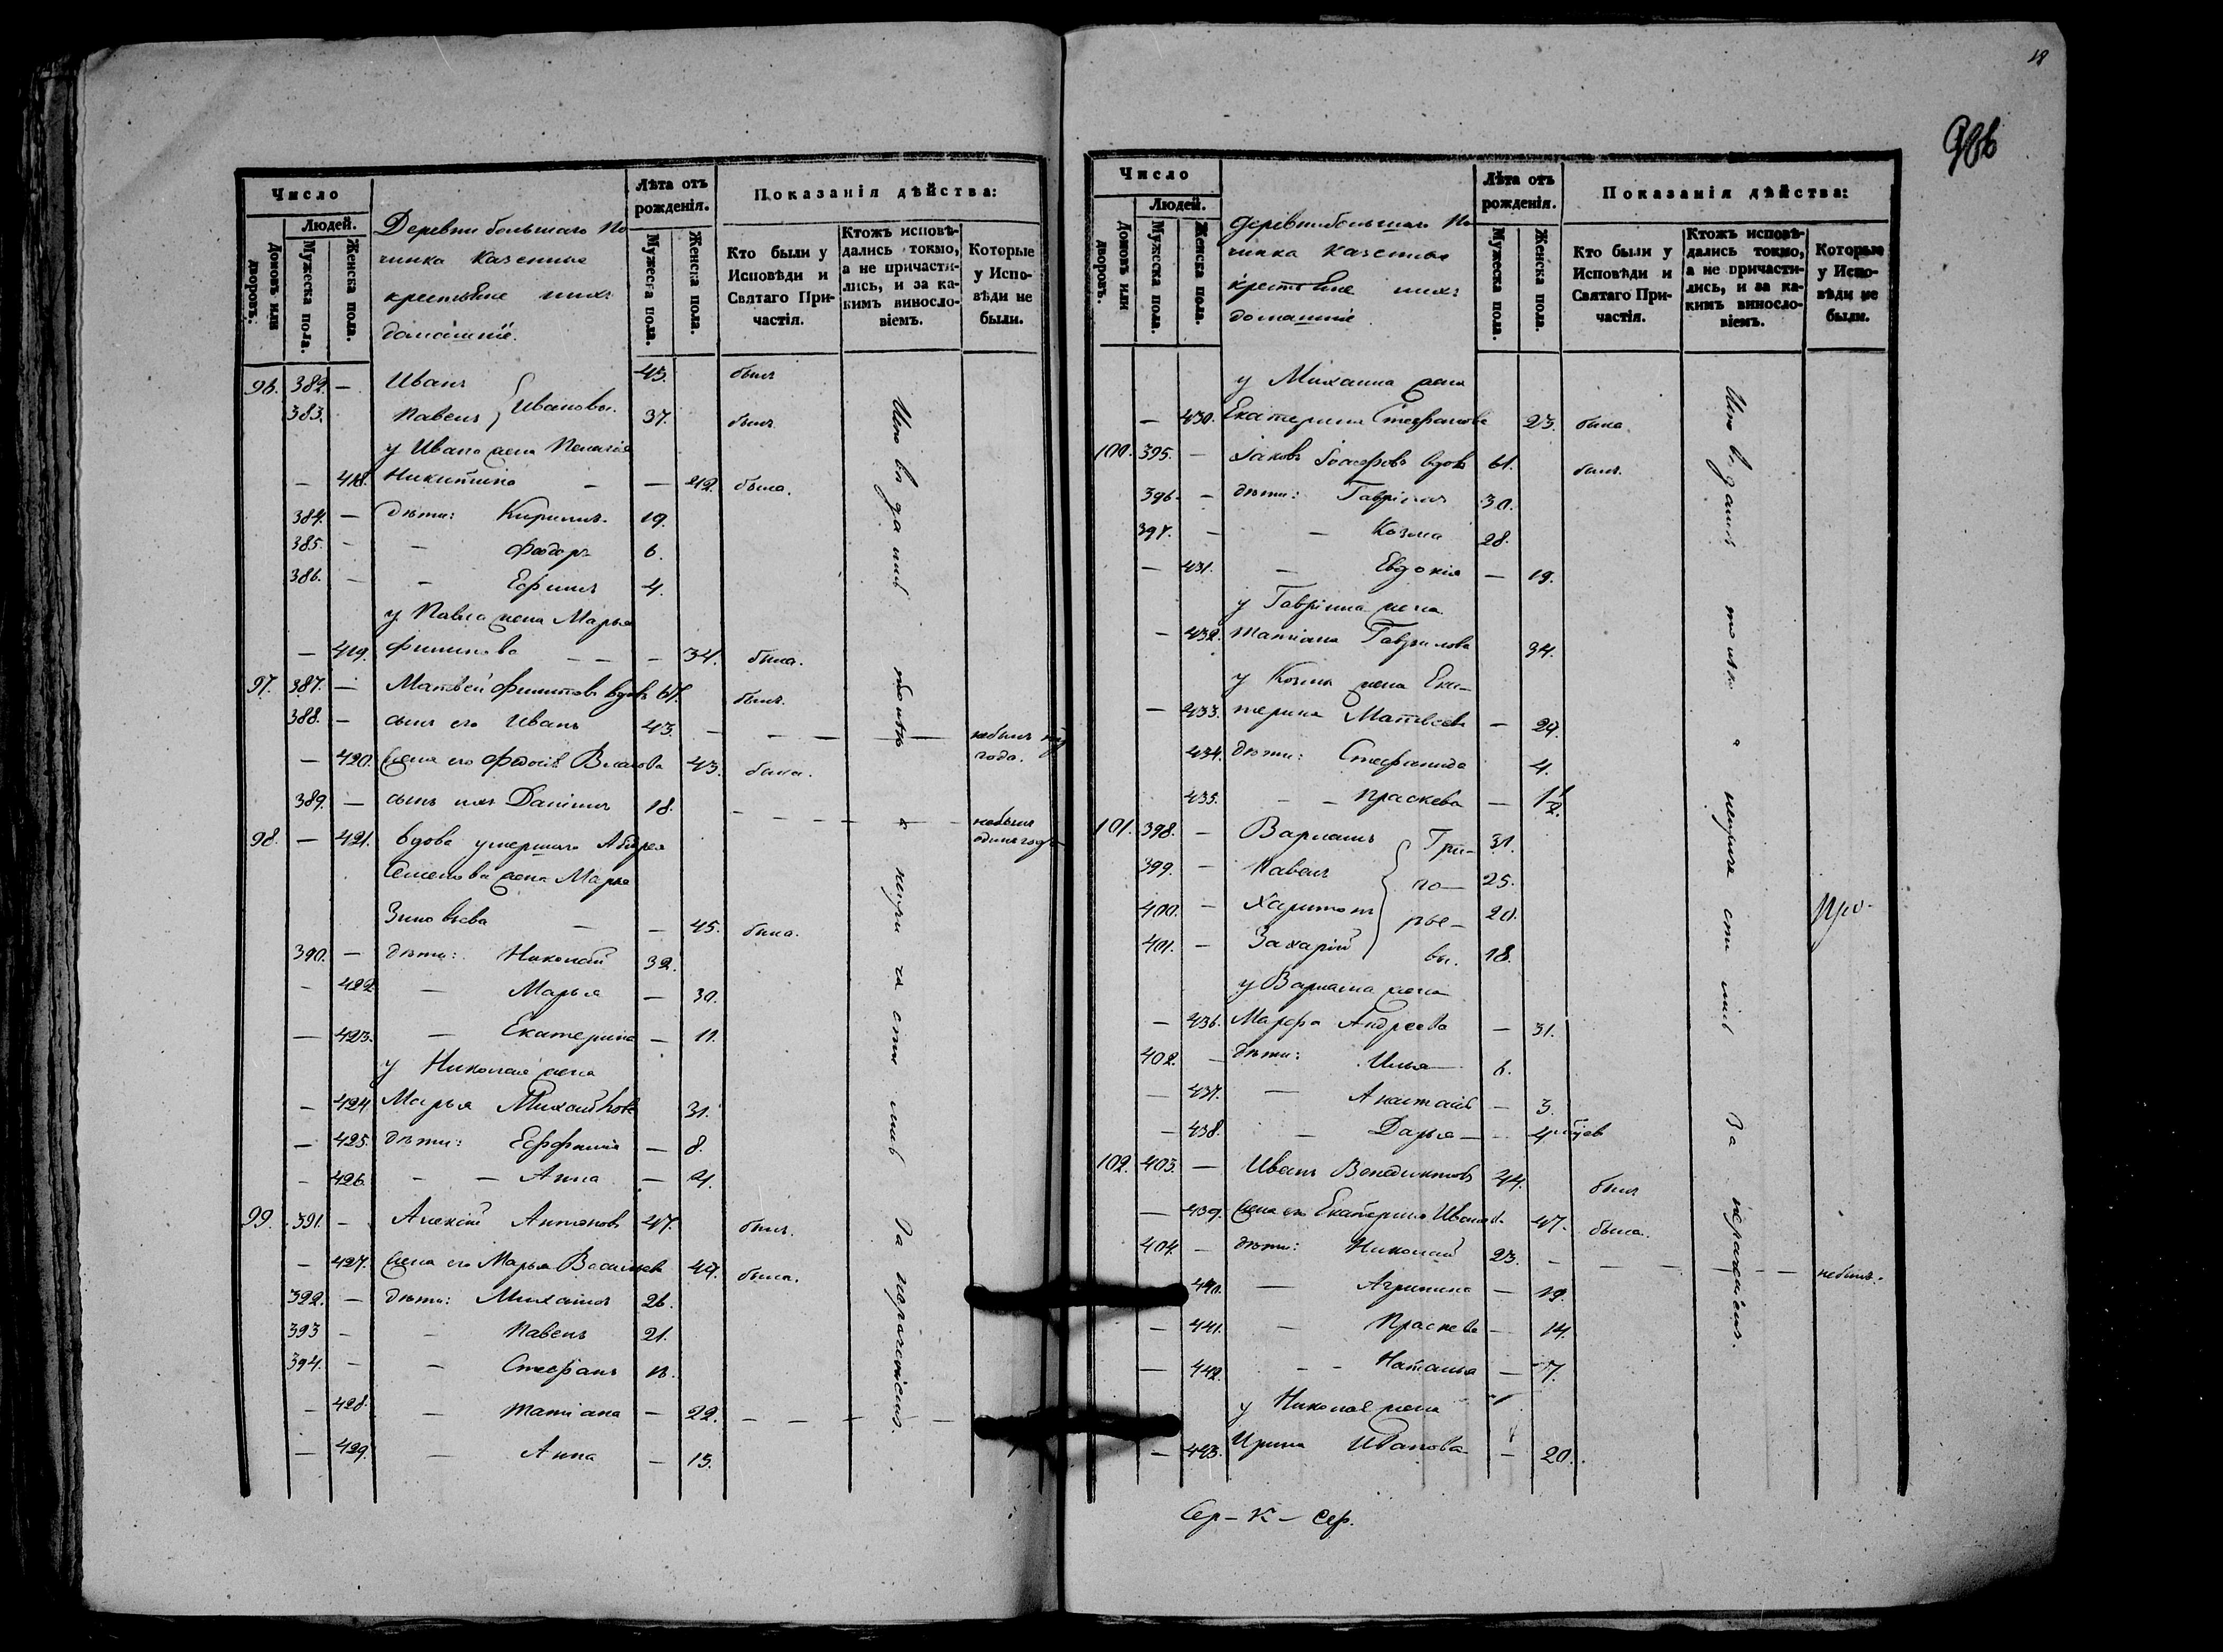 Число
Людей.
Домовъ или дворовъ.
Мужеска пола.
Женска пола.
Деревни большаго По
чинка казенные
крестьяне и ихъ
домашніе.
Лѣта отъ рожденія.
Мужеска пола.
Женска пола.
Показанія дѣйства:
Кто были у Исповѣди и Святаго Причастія.
Ктожъ исповѣдались токмо, а не причастились, и за какимъ винословіемъ.
Которые у Исповѣди не были.
96. 382. — Иванъ 45. былъ
383. Павелъ } Ивановы. 37. былъ
у Ивана жена Пелагія
— 418. Никитина — — 42. была.
384. — дѣти: Кирилъ. 19.
385. - - Федоръ 6.
386. - - Ефимъ 4.
у Павла жена Марья
— 419. Филипова — — — 34. была.
97. 387. — Матвей Филиповъ вдовъ 67. былъ.
388. — сынъ его Иванъ 43. — — — — небылъ
года.
— 420. жена его Федосія Власова 43. была.
389. — сынъ ихъ Даніилъ 18. — — — — небылъ
одинъ годъ
98. — 421. вдова умершаго Андрея
Семенова жена Марья
Зиновьева — — 45. была.
390. — дѣти: Николай 32.
- 422. — Марья — 30.
— 423. — Екатерина — 11.
у Николая жена
— 424. Марья Михайлова 31.
— 425. дѣти: Ефимія — 8.
- 426. - — Анна — 4.
99. 391. - Алексій Антоновъ 47. былъ.
— 427. жена его Марья Васильева 49. была.
392. — дѣти: Михаилъ 26.
393 - - Павелъ 21.
394. - - Стефанъ 18.
- 428. — Татіана — 22. — — — —
— 429. — Анна — 13.
Исповѣдались только а непричастились за нерачениемъ.
18
986
Число
Людей.
Домовъ или дворовъ.
Мужеска пола.
Женска пола.
деревни большаго По
чинка казенные
крестьяне и ихъ
домашніе
Лѣта отъ рожденія.
Мужеска пола.
Женска пола.
Показанія дѣйства:
Кто были у Исповѣди и Святаго Причастія.
Ктожъ исповѣдались токмо, а не причастились, и за какимъ винословіемъ.
Которые у Исповѣди не были.
у Михаила жена
— 430. Екатерина Стефанова 23. была.
100. 395. — Іаковъ Іосифовъ вдовъ 61. былъ.
396. — дѣти: Гавріилъ 30.
397. - — Козма 28.
— 431. — Евдокія — 19.
у Гавріила жена
— 432. Татіана Гаврилова 34.
у Козмы жена Ека-
— 433. терина Матвеева — 29.
434. дѣти: Стефанида 4.
435. - — Праскева — 1½.
101. 398. — Варламъ } Гри- 31.
399. — Павелъ го- 25.
400. - Харитонъ рье- 20.
401. - Захарій вы. 18.
у Варлама жена
— 436. Марфа Андреева — 31.
402. - дѣти: Илья — 6.
— 437. — Анастасія — 3.
— 438. — Дарья — — 4
102. 403. — Иванъ Венедиктовъ 44. былъ
— 439. жена его Екатерина Иванов. 47. была.
404. — дѣти: Николай 23. — — — — — небылъ.
440. — Агрипина — 19.
— 441. — Праскева — 14.
— 442. - - Наталья — 7.
у Николая жена
— 443. Ирина Иванова — 20.
Сер — К — Сер.